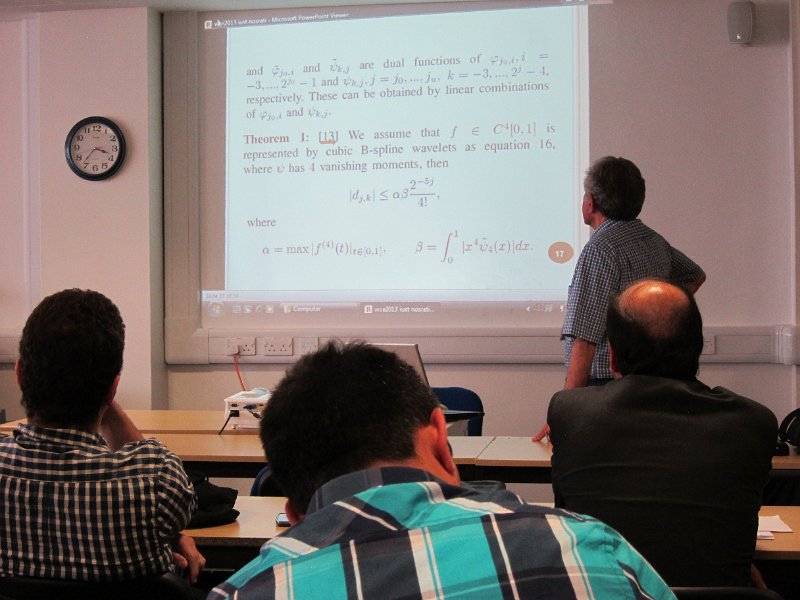 wce2013 iust nosrati - Microsoft PowerPoint Viewer
and φ̃_{j₀,i} and ψ̃_{k,j} are dual functions of φ_{j₀,i}, i =
−3, ..., 2^{j₀} − 1 and ψ_{k,j}, j = j₀, ..., j_u, k = −3, ..., 2^j − 4,
respectively. These can be obtained by linear combinations
of φ_{j₀,i} and ψ_{k,j}.
Theorem 1: [13] We assume that f ∈ C⁴[0,1] is
represented by cubic B-spline wavelets as equation 16,
where ψ has 4 vanishing moments, then
|d_{j,k}| ≤ αβ 2^{−5j}/4!,
where
α = max |f^{(4)}(t)|_{t∈[0,1]}, β = ∫₀¹ |x⁴ψ̃₄(x)|dx.
17
Computer
wce2013 iust nosrati...